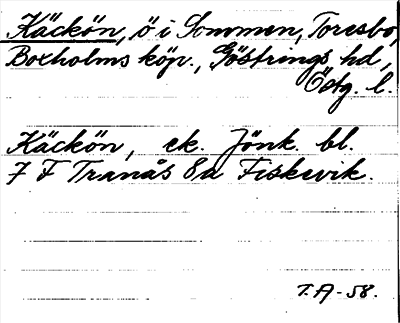 Käckön, ö i Sommen, Torsbo,
Boxholms köp., Göstrings hd,
Östg. l.
Käckön, ek. Jönk. bl.
7 F Tranås 8a Fiskevik.
T.A-58.